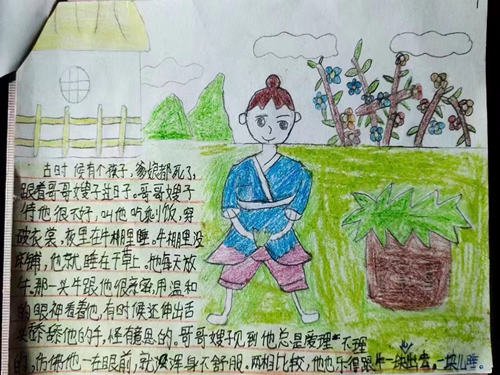 古时候有个孩子,爹娘都死了,
跟着哥哥嫂子过日子。哥哥嫂子
待他很不好,叫他吃剩饭,穿
破衣裳,夜里在牛棚里睡。牛棚里没
床铺,他就睡在干草上。他每天放
牛。那一头牛跟他很亲密,用温和
的眼神看着他,有时候还伸出舌
头舔舔他的手,怪有意思的。哥哥嫂子见到他总是爱理不理
的,仿佛他一在眼前,就浑身不舒服。两相比较,他也乐得跟牛一块出去,一块儿睡。